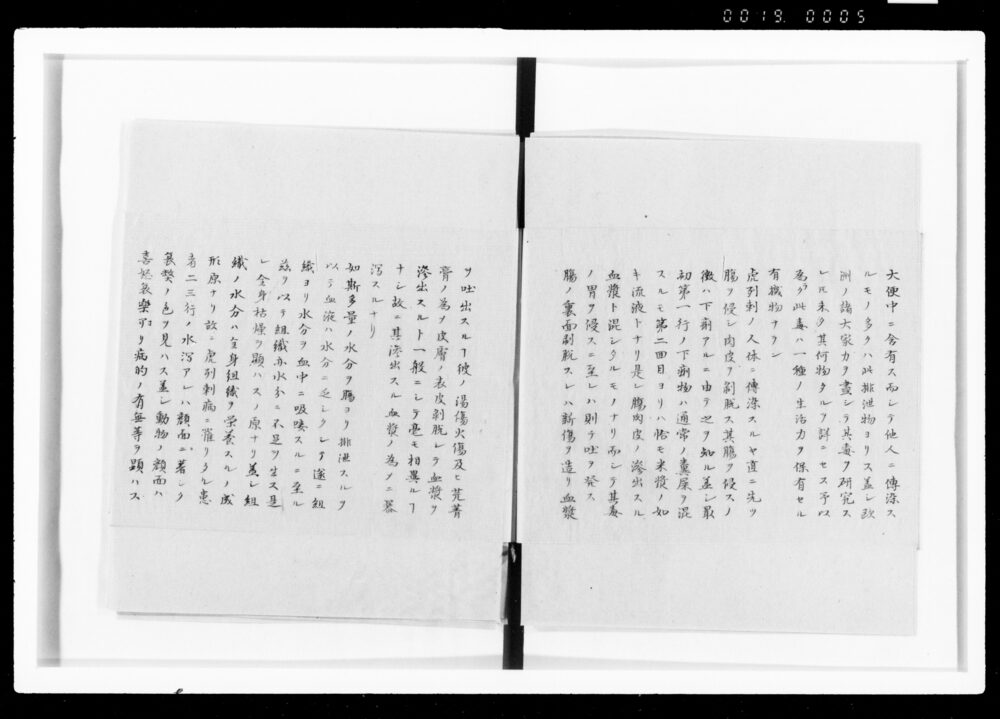 0019. 0005
大便中ニ含有ス而シテ他人ニ傳染ス
ルモノ多クハ此排泄物ヨリス蓋シ欧
洲ノ諸大家力ヲ盡シテ其毒ヲ研究ス
レ𪜈未タ其何物タルヲ詳ニセス予以
為ラク此毒ハ一種ノ生活力ヲ保有セル
有機物ナラン
虎列刺ノ人体ニ傳染スルヤ直ニ先ツ
腸ヲ侵シ内皮ヲ剥脱ス其腸ヲ侵スノ
徴ハ下痢アルニ由テ之ヲ知ル蓋シ最
初第一行ノ下痢物ハ通常ノ糞屎ヲ混
スルモ第二回目ヨリハ恰モ米漿ノ如
キ流液トナリ是レ腸内皮ノ滲出スル
血漿ト混シタルモノナリ而シテ其毒
ノ胃ヲ侵スニ至レハ則チ吐ヲ発ス
腸ノ裏面剥脱スレハ断傷ヲ造リ血漿
ヲ吐出スルヿ彼ノ湯傷火傷及ヒ芫菁
膏ノ為メ皮膚ノ表皮剥脱シテ血漿ヲ
滲出スルト一般ニシテ毫モ相異ルヿ
ナシ故ニ其滲出スル血漿ノ為メニ暴
瀉スルナリ
如斯多量ノ水分ヲ腸ヨリ排泄スルヲ
以テ血液ハ水分ニ乏シクシテ遂ニ組
織ヨリ水分ヲ血中ニ吸奏スルニ至ル
茲ヲ以テ組織亦水分ニ不足ヲ生ス是
レ全身枯燥ヲ顕ハスノ原ナリ蓋シ組
織ノ水分ハ全身組織ヲ栄養スルノ成
形原ナリ故ニ虎列刺病ニ罹リタル患
者二三行ノ水瀉アレハ顔面ニ著シク
衰弊ノ色ヲ見ハス蓋シ動物ノ顔面ハ
喜怒哀樂ヨリ病的ノ有無等ヲ顕ハス